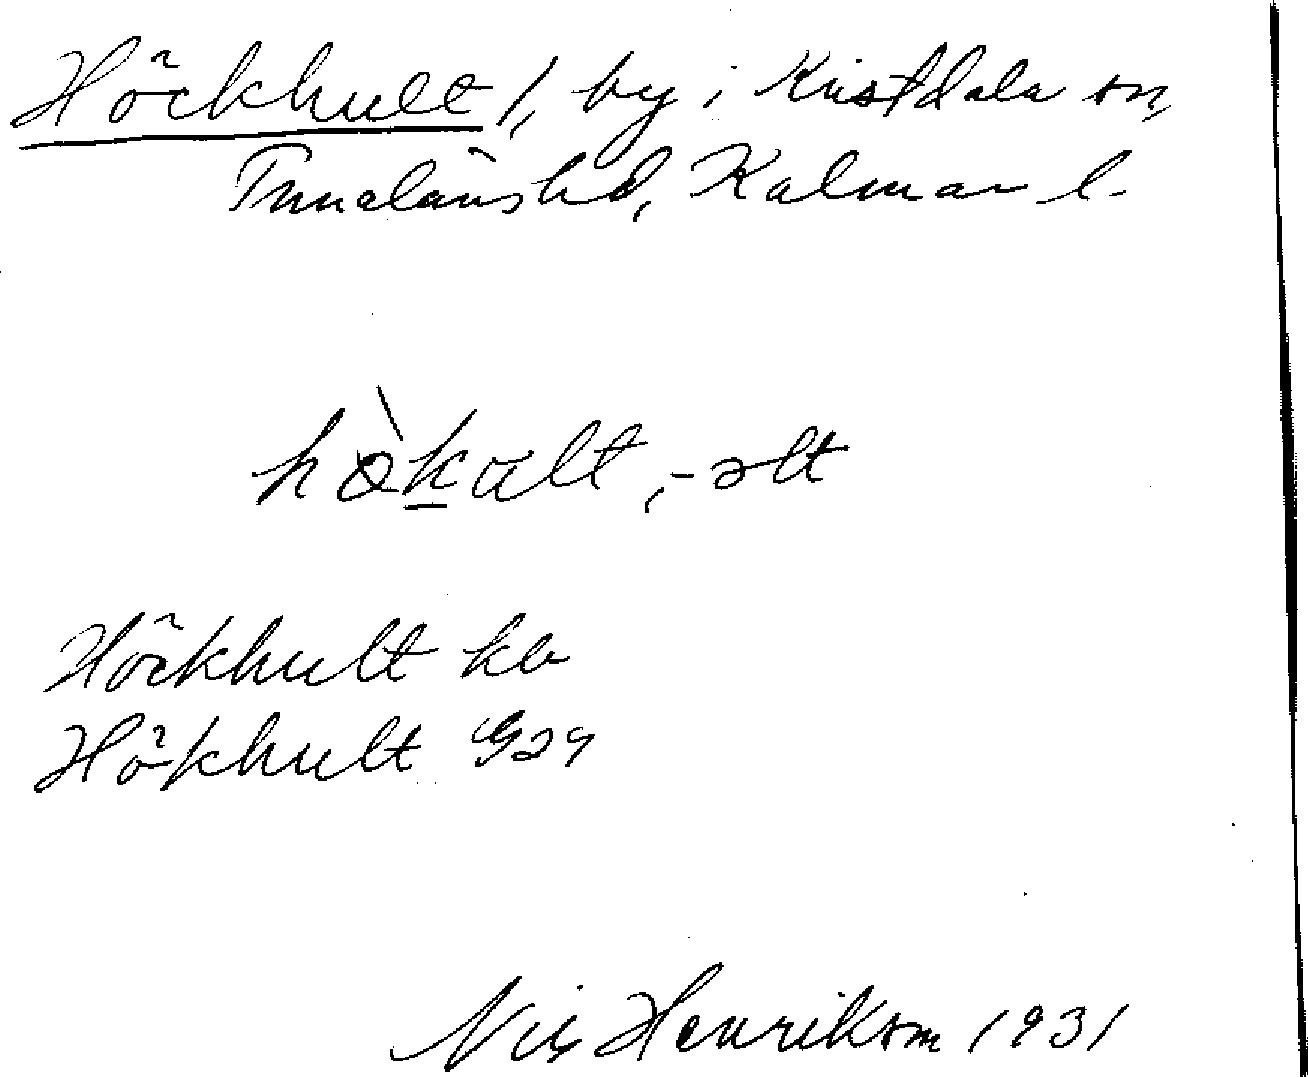 Höckhult 1, by i Kristdala sn,
Tunaläns hd, Kalmar l.
hökält, -əlt
Höckhult kb
Hökhult G29
Nils Henrikson 1931